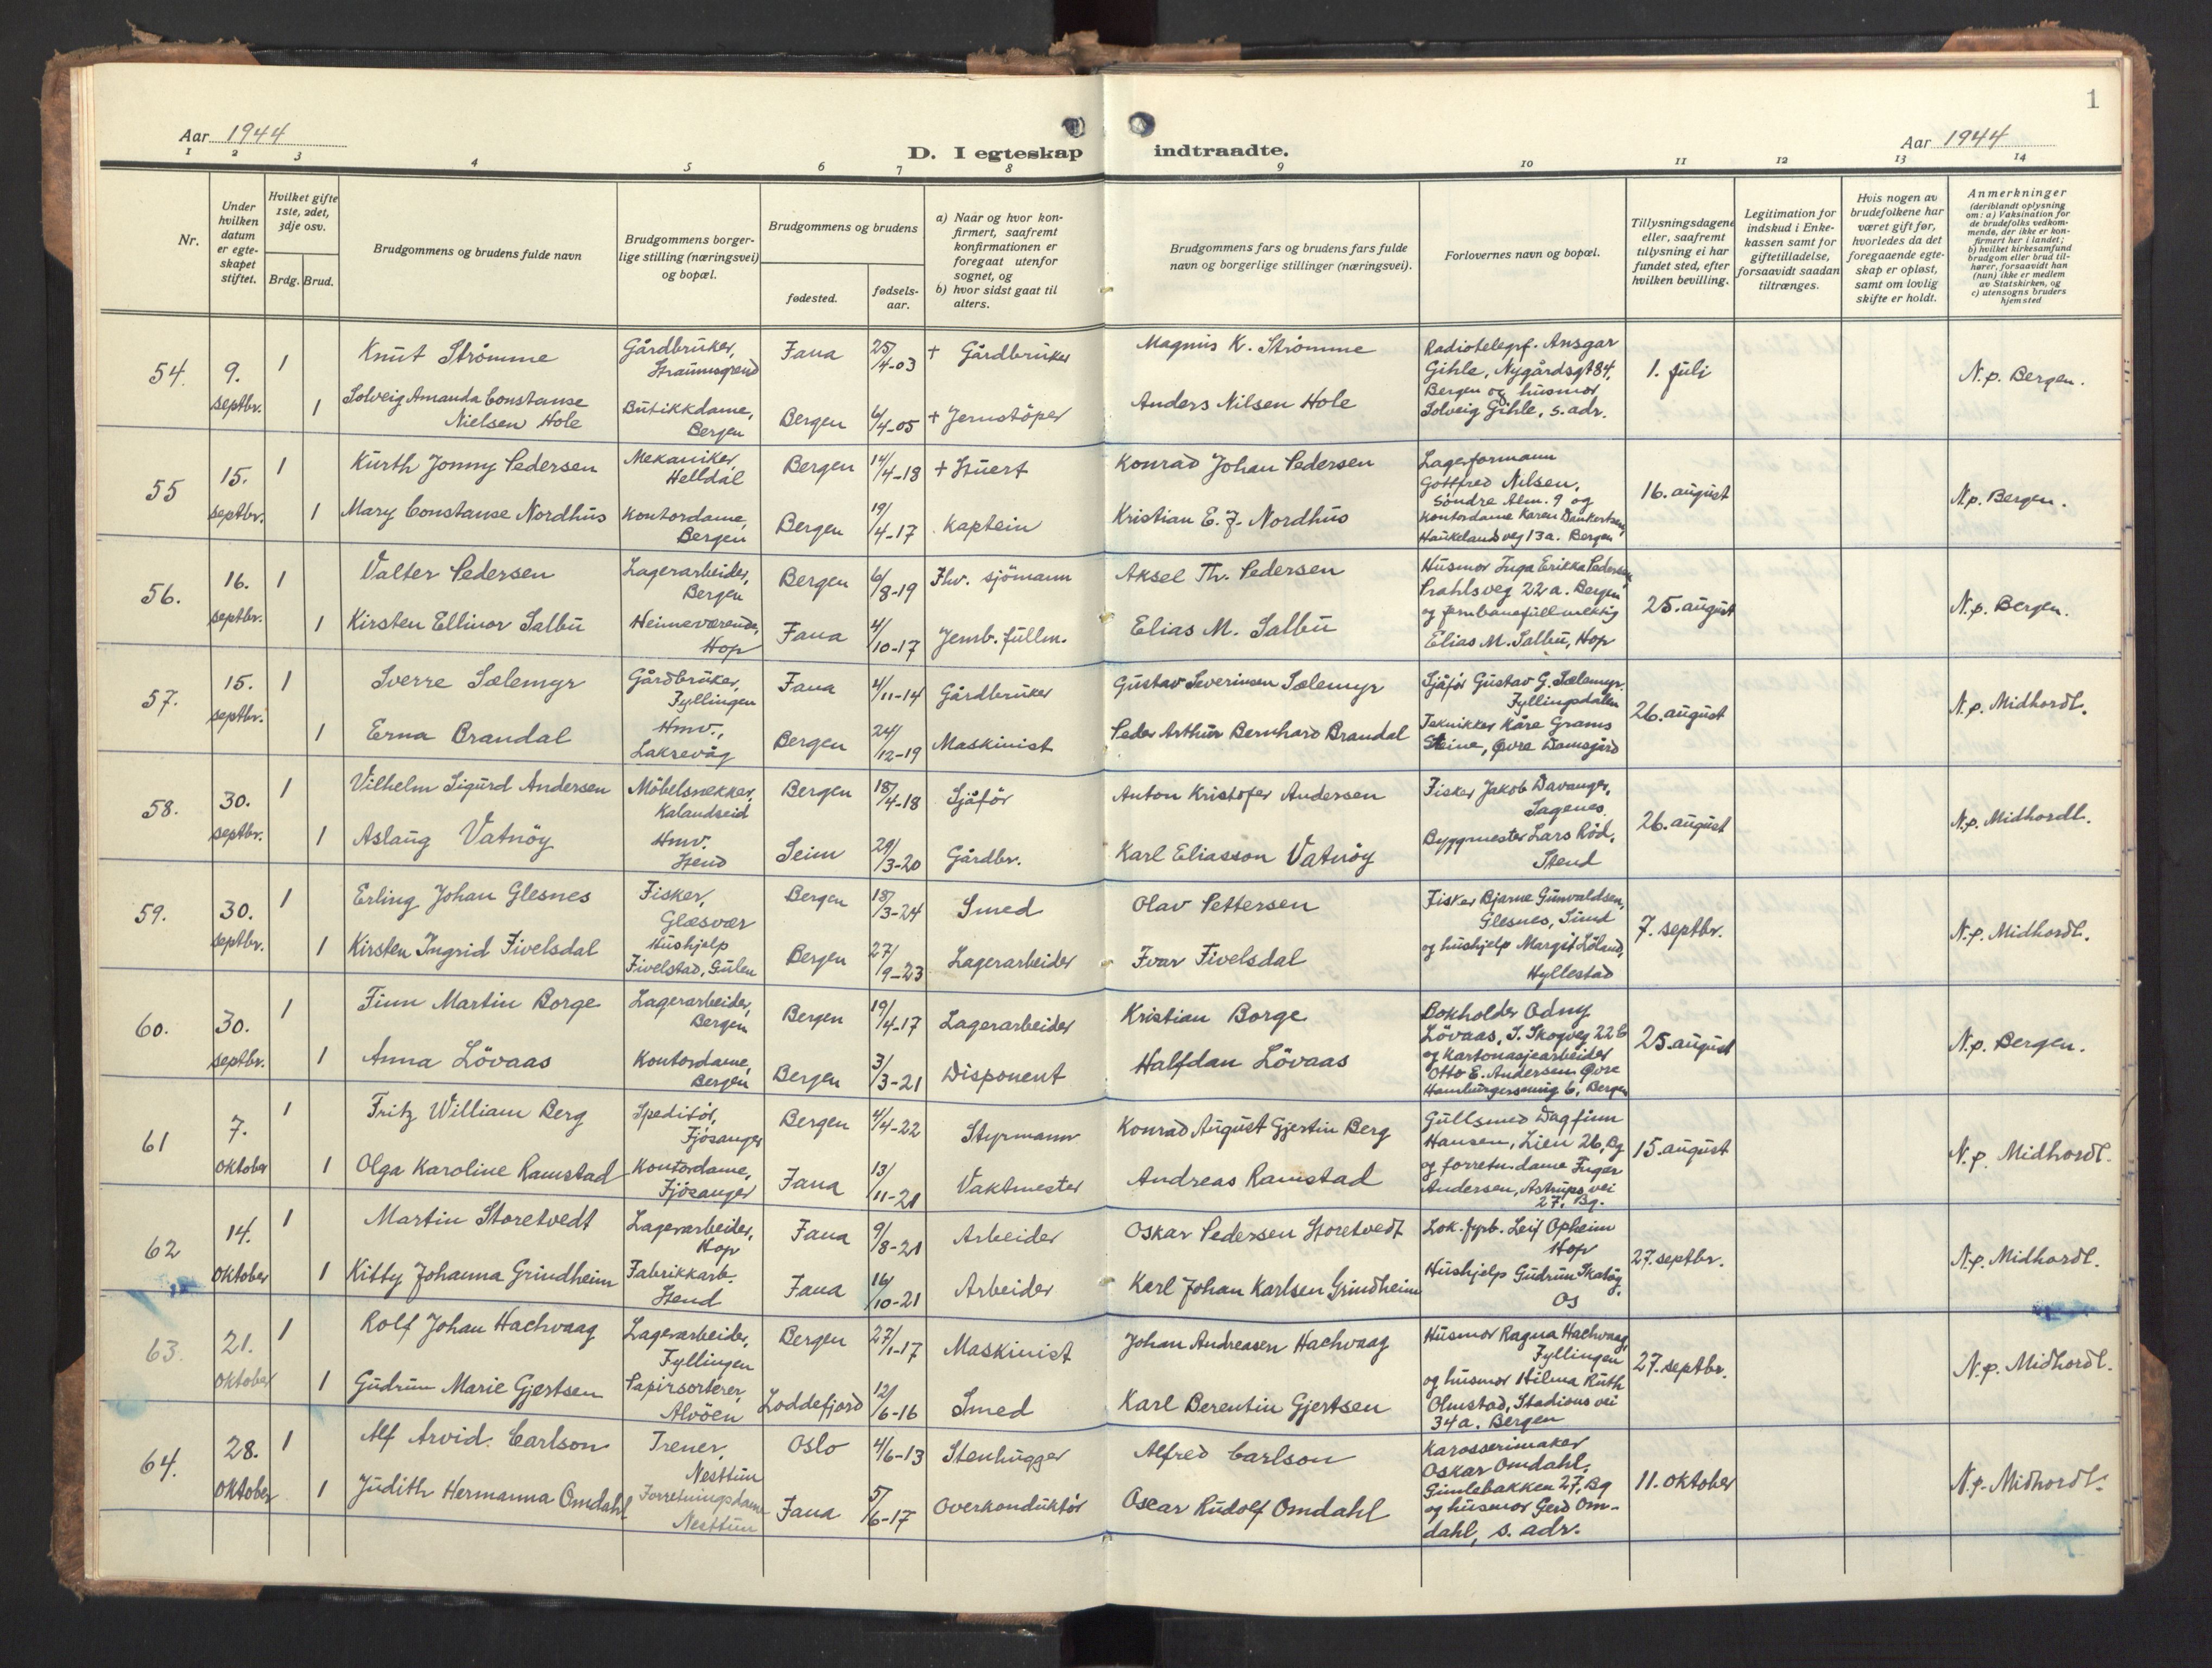 1
Aar 1944
D. I egteskap indtraadte.
Aar 1944
1 2 3 4 5 6 7 8 9 10 11 12 13 14
Nr.
Under hvilken datum er egteskapet stiftet.
Hvilket gifte 1ste, 2det, 3dje osv.
Brdg. Brud.
Brudgommens og brudens fulde navn
Brudgommens borgerlige stilling (næringsvei) og bopæl.
Brudgommens og brudens
fødested.
fødselsaar.
a) Naar og hvor konfirmert, saafremt konfirmationen er foregaat utenfor sognet, og
b) hvor sidst gaat til alters.
Brudgommens fars og brudens fars fulde navn og borgerlige stillinger (næringsvei).
Forlovernes navn og bopæl.
Tillysningsdagene eller, saafremt tillysning ei har fundet sted, efter hvilken bevilling.
Legitimation for indskud i Enkekassen samt for giftetilladelse, forsaavidt saadan tiltrænges.
Hvis nogen av brudefolkene har været gift før, hvorledes da det foregaaende egteskap er opløst, samt om lovlig skifte er holdt.
Anmerkninger
(deriblandt oplysning om: a) Vaksination for de brudefolks vedkommende, der ikke er konfirmert her i landet; b) hvilket kirkesamfund brudgom eller brud tilhører, forsaavidt han (hun) ikke er medlem av Statskirken, og c) utensogns bruders hjemsted
54. 9. septbr. 1 Knut Strømme Gårdbruker, Straumsgrend Fana 25/4-03 + Gårdbruker Magnus K. Strømme
1 Solveig Amanda Constanse Nielsen Hole Butikkdame, Bergen Bergen 6/4-05 + Jernstöper Anders Nilsen Hole
Radiotelegrf. Ansgar
Gihle, Nygårdsgt 84,
Bergen og husmor
Solveig Gihle, s. adr.
1. juli N.p. Bergen.
55 15. septbr. 1 Kurth Jonny Pedersen Mekaniker, Helldal Bergen 14/4-18 + Stuert Konrad Johan Pedersen
1 Mary Constanse Nordhus Kontordame, Bergen Bergen 19/4-17 Kaptein Kristian E. J. Nordhus
Lagerformann
Gottfred Nilsen,
Søndre Alm. 9 og
Kontordame Karen Dankertsen,
Haukelandsveg 13a. Bergen
16. august N.p. Bergen.
56. 16. septbr. 1 Valter Pedersen Lagerarbeider, Bergen Bergen 6/8-19 Fhv. sjömann Aksel Th. Pedersen
1 Kirsten Ellinor Salbu Heimeværende, Hop Fana 4/10-17 Jernb. fullm. Elias M. Salbu
Husmor Inga Erikka Pedersen,
Prahlsveg 22a. Bergen
og jernbanefullmektig
Elias M. Salbu, Hop
25. august N.p. Bergen.
57. 15. septbr. 1 Sverre Sælemyr Gårdbruker, Fyllingen Fana 4/11-14 Gårdbruker Gustav Severinsen Sælemyr
1 Erna Brandal Hmv., Laksevåg Bergen 24/12-19 Maskinist Peder Arthur Bernhard Brandal
Sjåfør Gustav G. Sælemyr.
Fyllingsdalen
Teknikker Kåre Grams
Steine, Øvre Damsgård
26. august N.p. Midhordl.
58. 30. septbr. 1 Vilhelm Sigurd Andersen Möbelsnekker, Kalandseid Bergen 18/4-18 Sjåfør Anton Kristofer Andersen
1 Aslaug Vatnöy Hmv. Stend Seim 29/3-20 Gårdbr. Karl Eliasson Vatnöy
Fisker Jakob Davanger,
Sagenes.
Byggmester Lars Röd,
Stend
26. august N.p. Midhordl.
59. 30. septbr. 1 Erling Johan Glesnes Fisker, Glesvær Bergen 18/3-24 Smed Olav Pettersen
1 Kirsten Ingrid Fivelsdal Hushjelp Fivelstad, Gulen Bergen 27/9-23 Lagerarbeider Ivar Fivelsdal
Fisker Bjarne Gunvaldsen,
Glesnes, Sund
og hushjelp Margit Löland,
Hyllestad
7. septbr. N.p. Midhordl.
60. 30. septbr. 1 Finn Martin Borge Lagerarbeider, Bergen Bergen 19/4-17 Lagerarbeider Kristian Borge
1 Anna Lövaas Kontordame, Bergen Bergen 3/3-21 Disponent Halfdan Lövaas
Bokholder Odny
Lövaas, S. Skogveg 22b
og Kartonasjearbeider
Otto E. Andersen, Øvre
Hamburgersmug 6, Bergen
25. august N.p. Bergen.
61 7. oktober 1 Fritz William Berg Speditör, Fjösanger Bergen 4/4-22 Styrmann Konrad August Gjertin Berg
1 Olga Karoline Ramstad Kontordame, Fjösanger Fana 13/11-21 Vaktmester Andreas Ramstad
Gullsmed Dagfinn
Hansen, Lien 26, Bg
og forretn. dame Inger
Andersen, Astrups vei
27, Bg.
15. august N.p. Midhordl.
62 14. oktober 1 Martin Storetvedt Lagerarbeider, Hop Fana 9/8-21 Arbeider Oskar Pedersen Storetvedt
1 Kitty Johanna Grindheim Fabrikkarb. Stend Fana 14/10-21 Arbeider Karl Johan Karlsen Grindheim
Lok. fyrb. Leif Opheim
Hop
Hushjelp Gudrun Skatög.
Os
27. septbr. N.p. Midhordl.
63. 21. oktober 1 Rolf Johan Hachvaag Lagerarbeider, Fyllingen Bergen 27/1-17 Maskinist Johan Andreasen Hachvaag
1 Gudrun Marie Gjertsen Papirsorterer, Alvöen Loddefjord 12/6-16 Smed Karl Berentin Gjertsen
Husmor Ragna Hachvaag,
Fyllingen
og husmor Hilma Ruth
Olmstad, Stadions vei
34a. Bergen
27. septbr. N.p. Midhordl.
64. 28. oktober 1 Alf Arvid. Carlson Trener, Nesttun Oslo 4/6-13 Stenhugger Alfred Carlson
1 Judith Hermanna Omdahl Forretningsdame Nesttun Fana 5/6-17 Overkonduktör Oscar Rudolf Omdahl
Karosserimaker
Oskar Omdahl,
Gimlebakken 27, Bg
og husmor Gerd Om-
dahl, s. adr.
11. oktober N.p. Midhordl.